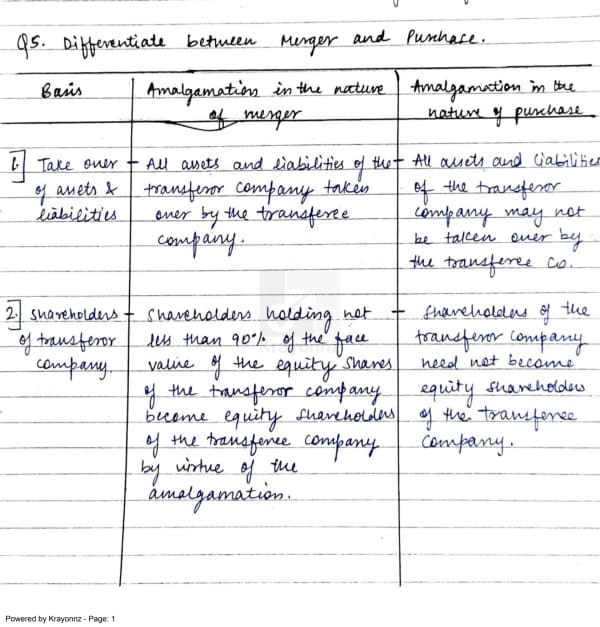 Q5. Differentiate between Merger and Purchase.
Basis
Amalgamation in the nature
of merger
Amalgamation in the
nature of purchase
1.] Take over
of assets &
liabilities
- All assets and liabilities of the
transferor company taken
over by the transferee
company.
- All assets and liabilities
of the transferor
company may not
be taken over by
the transferee co.
2.] Shareholders
of transferor
company.
- Shareholders holding not
less than 90% of the face
value of the equity shares
of the transferor company
become equity shareholders
of the transferee company
by virtue of the
amalgamation.
- Shareholders of the
transferor company
need not become
equity shareholders
of the transferee
company.
Powered by Krayonnz - Page: 1